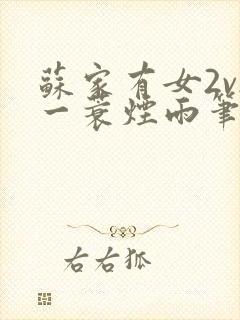 蘇家有女2v
一蓑煙雨筆
右右狐